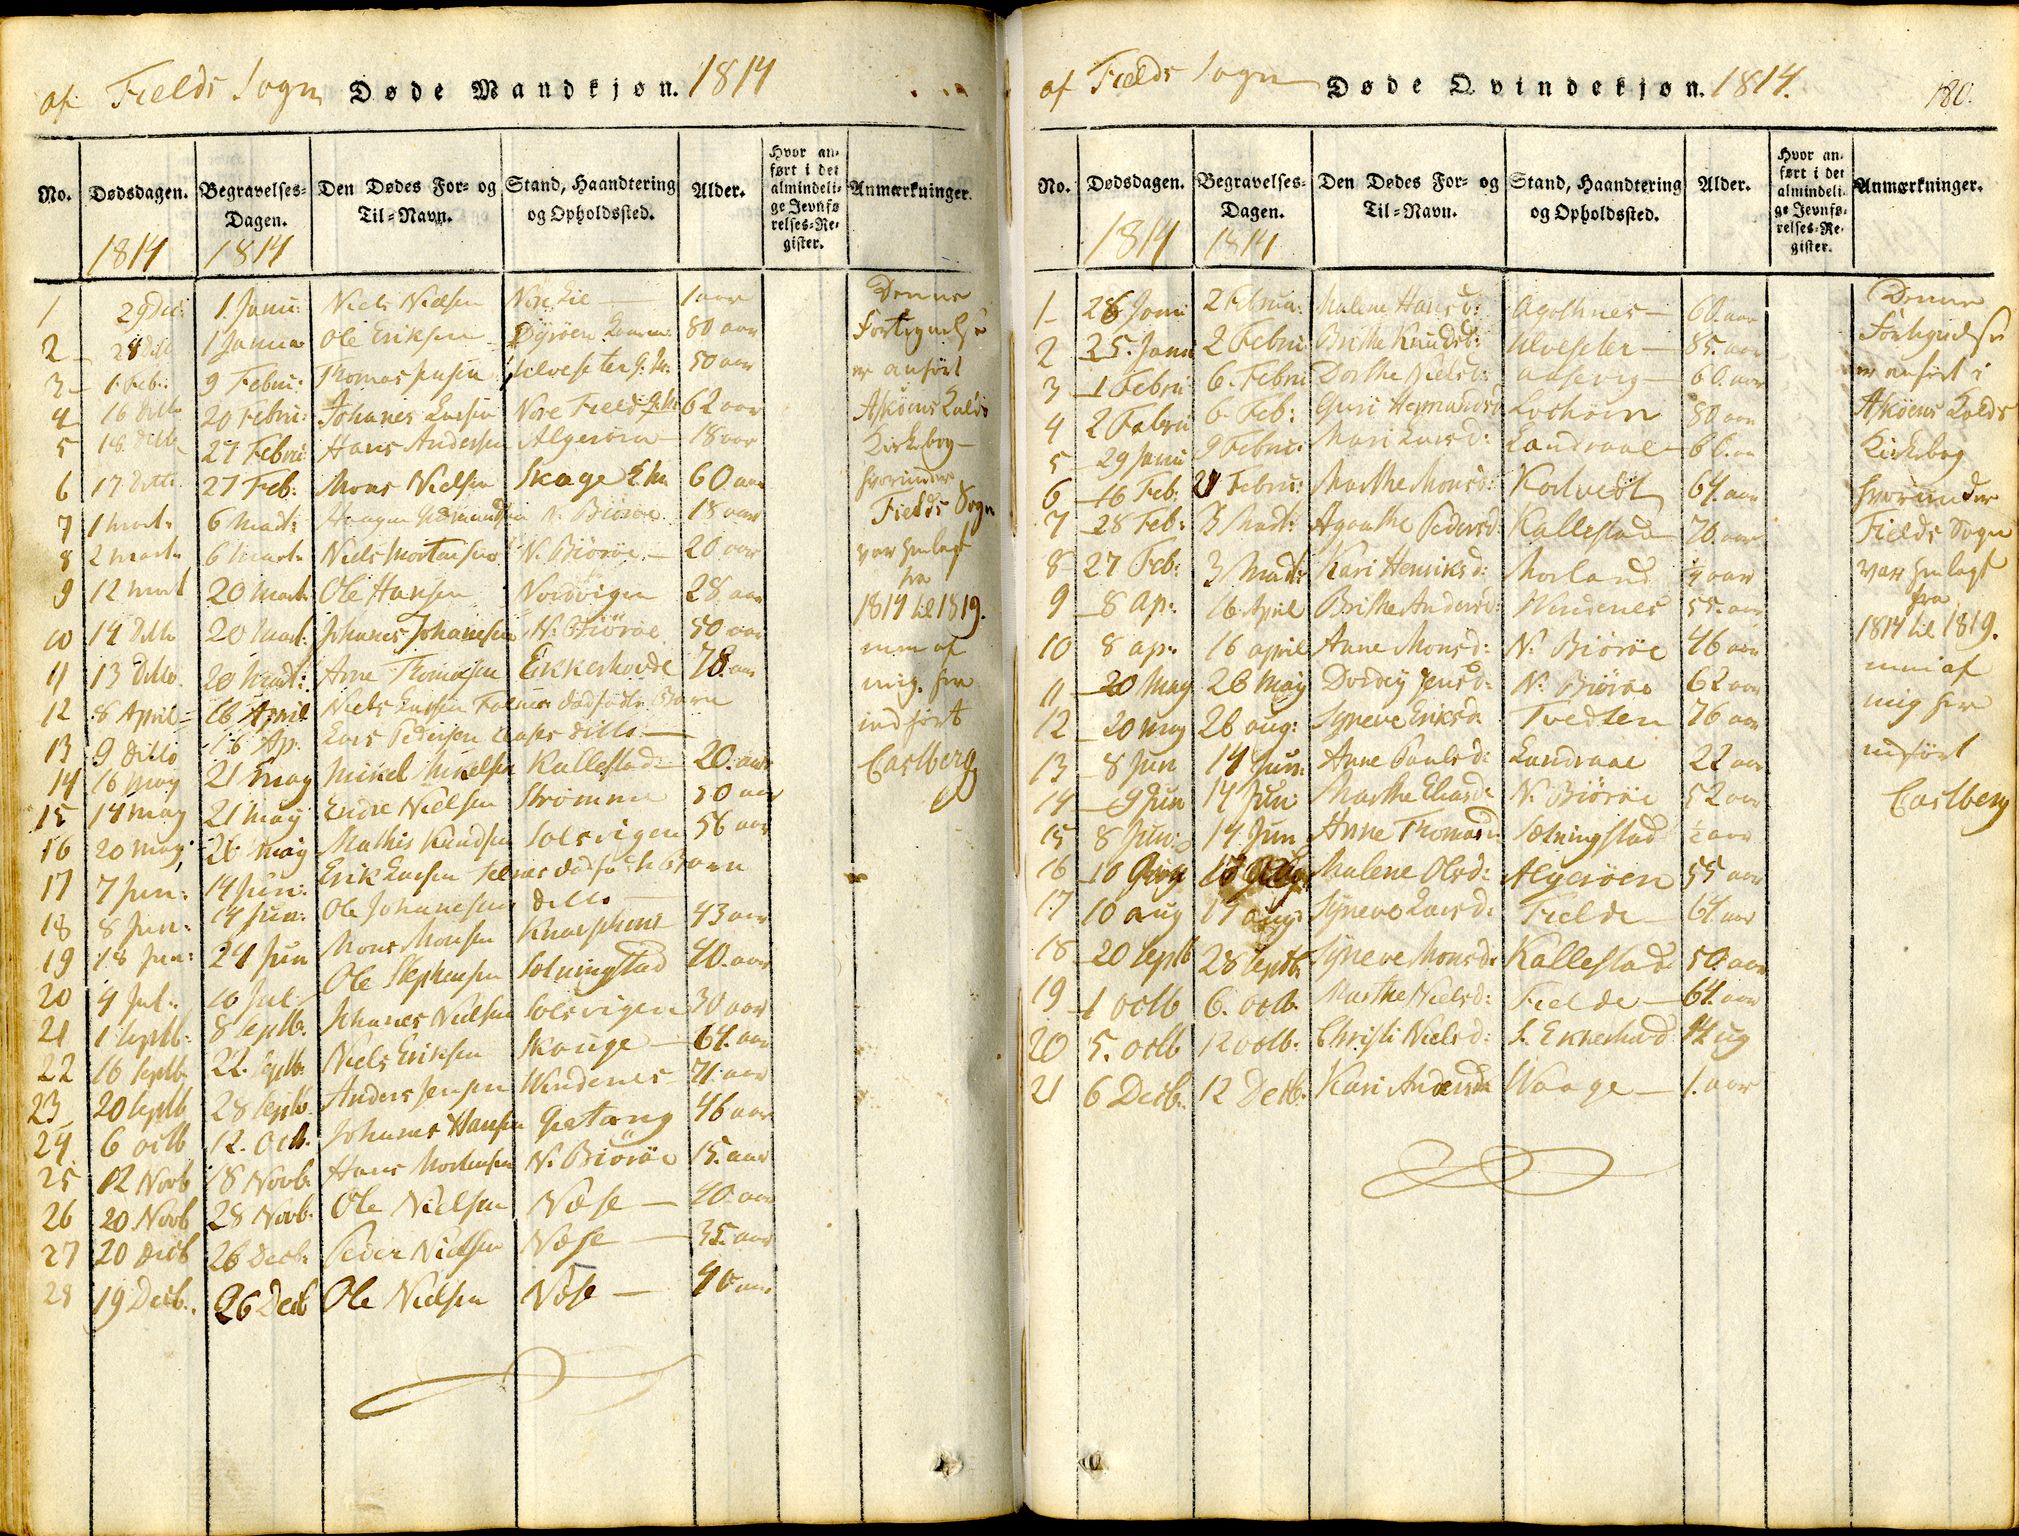 af Fields Sogn Døde Mandkjøn. 1814
No. Dødsdagen. Begravelses-Dagen. Den Dødes For- og Til-Navn. Stand, Haandtering og Opholdssted. Alder. Hvor anført i det almindelige Jevnførelses-Register. Anmærkninger.
1814 1814
1 29 Dec: 1. Janu: Niels Nielsen 1 aar
2 28 Ditto 1 Janua Ole Eriksen 80 aar
3 1. Feb: 9 Febru: Thomas Jensen 50 aar
4 16 Ditto 20 Febru: Johanes Larsen Nore Field 62 aar
5 18 Ditto 27 Febru: Hans Andersen Algerøen 18 aar
6 17 Ditto 27 Feb: Mons Nielsen Skage 60 aar
7 1 Mart: 6 Mart: Haagen N. Biørøe 18 aar
8 2 Mart: 6 Mart: Niels Mortensen N. Biørøe 20 aar
9 12 Mart 20 Mart: Ole Hansen Nordvigen 28 aar
10 14 Ditto 20 Mart: Johanes Johanesen N. Biørøe 50 aar
11 13 Ditto 20 Mart: Arne Thomasen Eikkerhovde 78. aar
12 8 April 16 April Niels Larsen dødfødte Barn
13 9 Ditto 16 Ap. Lars Pedersen ditto
14 16 May 21 May Mikel Mikelsen Kallestad 20. aar
15 14 May 21 May Endre Nielsen Strømme 50 aar
16 20 May 26 May Mathis Knudsen Solsvigen 56 aar
17 7 Jun: 14 Jun: Erik Larsen dødfødte Barn
18 8 Jun: 14 Jun: Ole Johanesen ditto
19 18 Jun: 24 Jun Mons Monsen 43 aar
20 4 Jul: 10 Jul: Ole Stephensen Sælningstad 40. aar
21 1 Septb: 8 Septb: Johanes Nielsen Solsvigen 30 aar
22 16 Septb 22. Septb: Niels Eriksen Skauge 64. aar
23 20 Septb 28 Septb. Anders Jensen Windenes 71. aar
24 6 Octb 12. Octb. Johanes Hansen Getang 46 aar
25 12 Novb 18 Novb. Hans Mortensen N. Biørøe 15. aar
26 20 Novb 28 Novb. Ole Nielsen Næse 40. aar
27 20 Decb 26 Decb. Peder Nielsen Næse 35. aar
28 19 Decb. 26 Decb Ole Nielsen Næse 40 aar
Denne
Fortegnelse
er anført
i Askøens Kalds
Kirkebog
hvorunder
Fields Sogn
var henlagt
fra
1814 til 1819.
men af
mig her
indført
Carlberg
af Fields Sogn Døde Qvindekjøn. 1814. 180.
No. Dødsdagen. Begravelses-Dagen. Den Dødes For- og Til-Navn. Stand, Haandtering og Opholdssted. Alder. Hvor anført i det almindelige Jevnførelses-Register. Anmærkninger.
1814 1814
1 28 Janu 2 Februa: Malene Hansd: Agothnes 60. aar
2 25. Janu 2 Febru: Brithe Knudsd: Ulveseter 85. aar
3 1 Febru 6. Febru Dorthe Nielsd: 60. aar
4 2 Febru 6. Feb: Guri 80 aar
5 29 Janu 9 Febru: Mari Larsd: Landraae
6 16 Feb: 21 Febru: Marthe Monsd: 64. aar
7 28 Feb: 3 Mart: Agaathe Pedersd: Kallestad 70. aar
8 27 Feb: 3 Mart: Kari Henriksd: Morland aar
9 8 Ap: 16 April Brithe Andersd: Windenes 55. aar
10 8 ap: 16 april Anne Monsd: N. Biørøe 46 aar
11 20 May 26 May Jensd: N. Biørøe 62 aar
12 20 may 26 aug: Syneve Eriksd: Tvedten 76 aar
13 8 Jun 14 Jun: Anne Paulsd: Landraae 22 aar
14 9 Jun 14 Jun: Marthe Eliasd: N. Biørøe 52 aar
15 8 Jun: 14 Jun Anne Thomasd: Sælningstad ½ aar
16 10 Malene Olsd: Algerøen 55 aar
17 10 aug 17 aug: Syneve Larsd: Fielde 64 aar
18 20 Septb 28 Septb: Syneve Monsd: Kallestad 50. aar
19 1 octb 6. octb. Marthe Nielsd: Fielde 64. aar
20 5. octb 12 octb: Christi Nielsd: 14 ug
21 6 Decb: 12 Decb: Kari Andersd: Waage 1. aar
Denne
Fortegnelse
er anført i
Askøens Kalds
Kirkebog
hvorunder
Fields Sogn
var henlagt
fra
1814 til 1819.
men af
mig her
indført
Carlberg